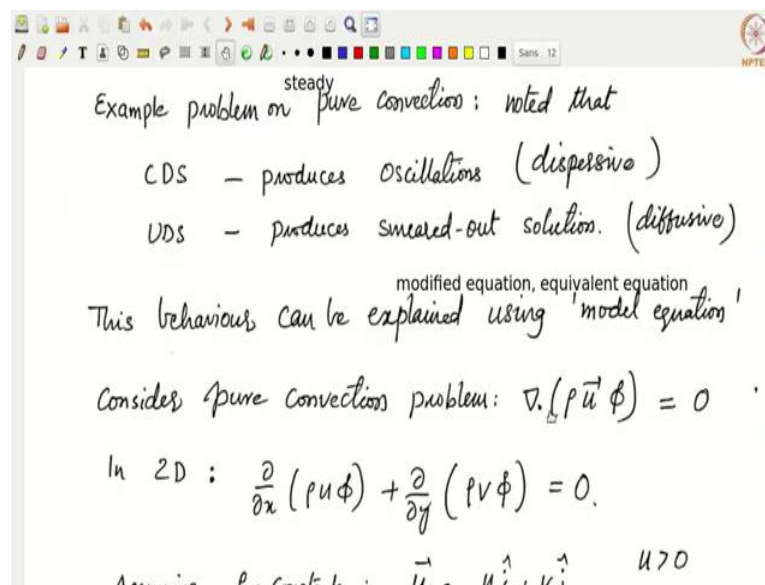 Sans 12
NPTE
steady
Example problem on pure convection; noted that
CDS - produces oscillations (dispersive)
UDS - produces smeared-out solution. (diffusive)
modified equation, equivalent equation
This behaviour can be explained using 'model equation'
Consider pure convection problem: ∇.(ρu⃗ φ) = 0
In 2D : ∂/∂x (ρuφ) + ∂/∂y (ρvφ) = 0.
u>0